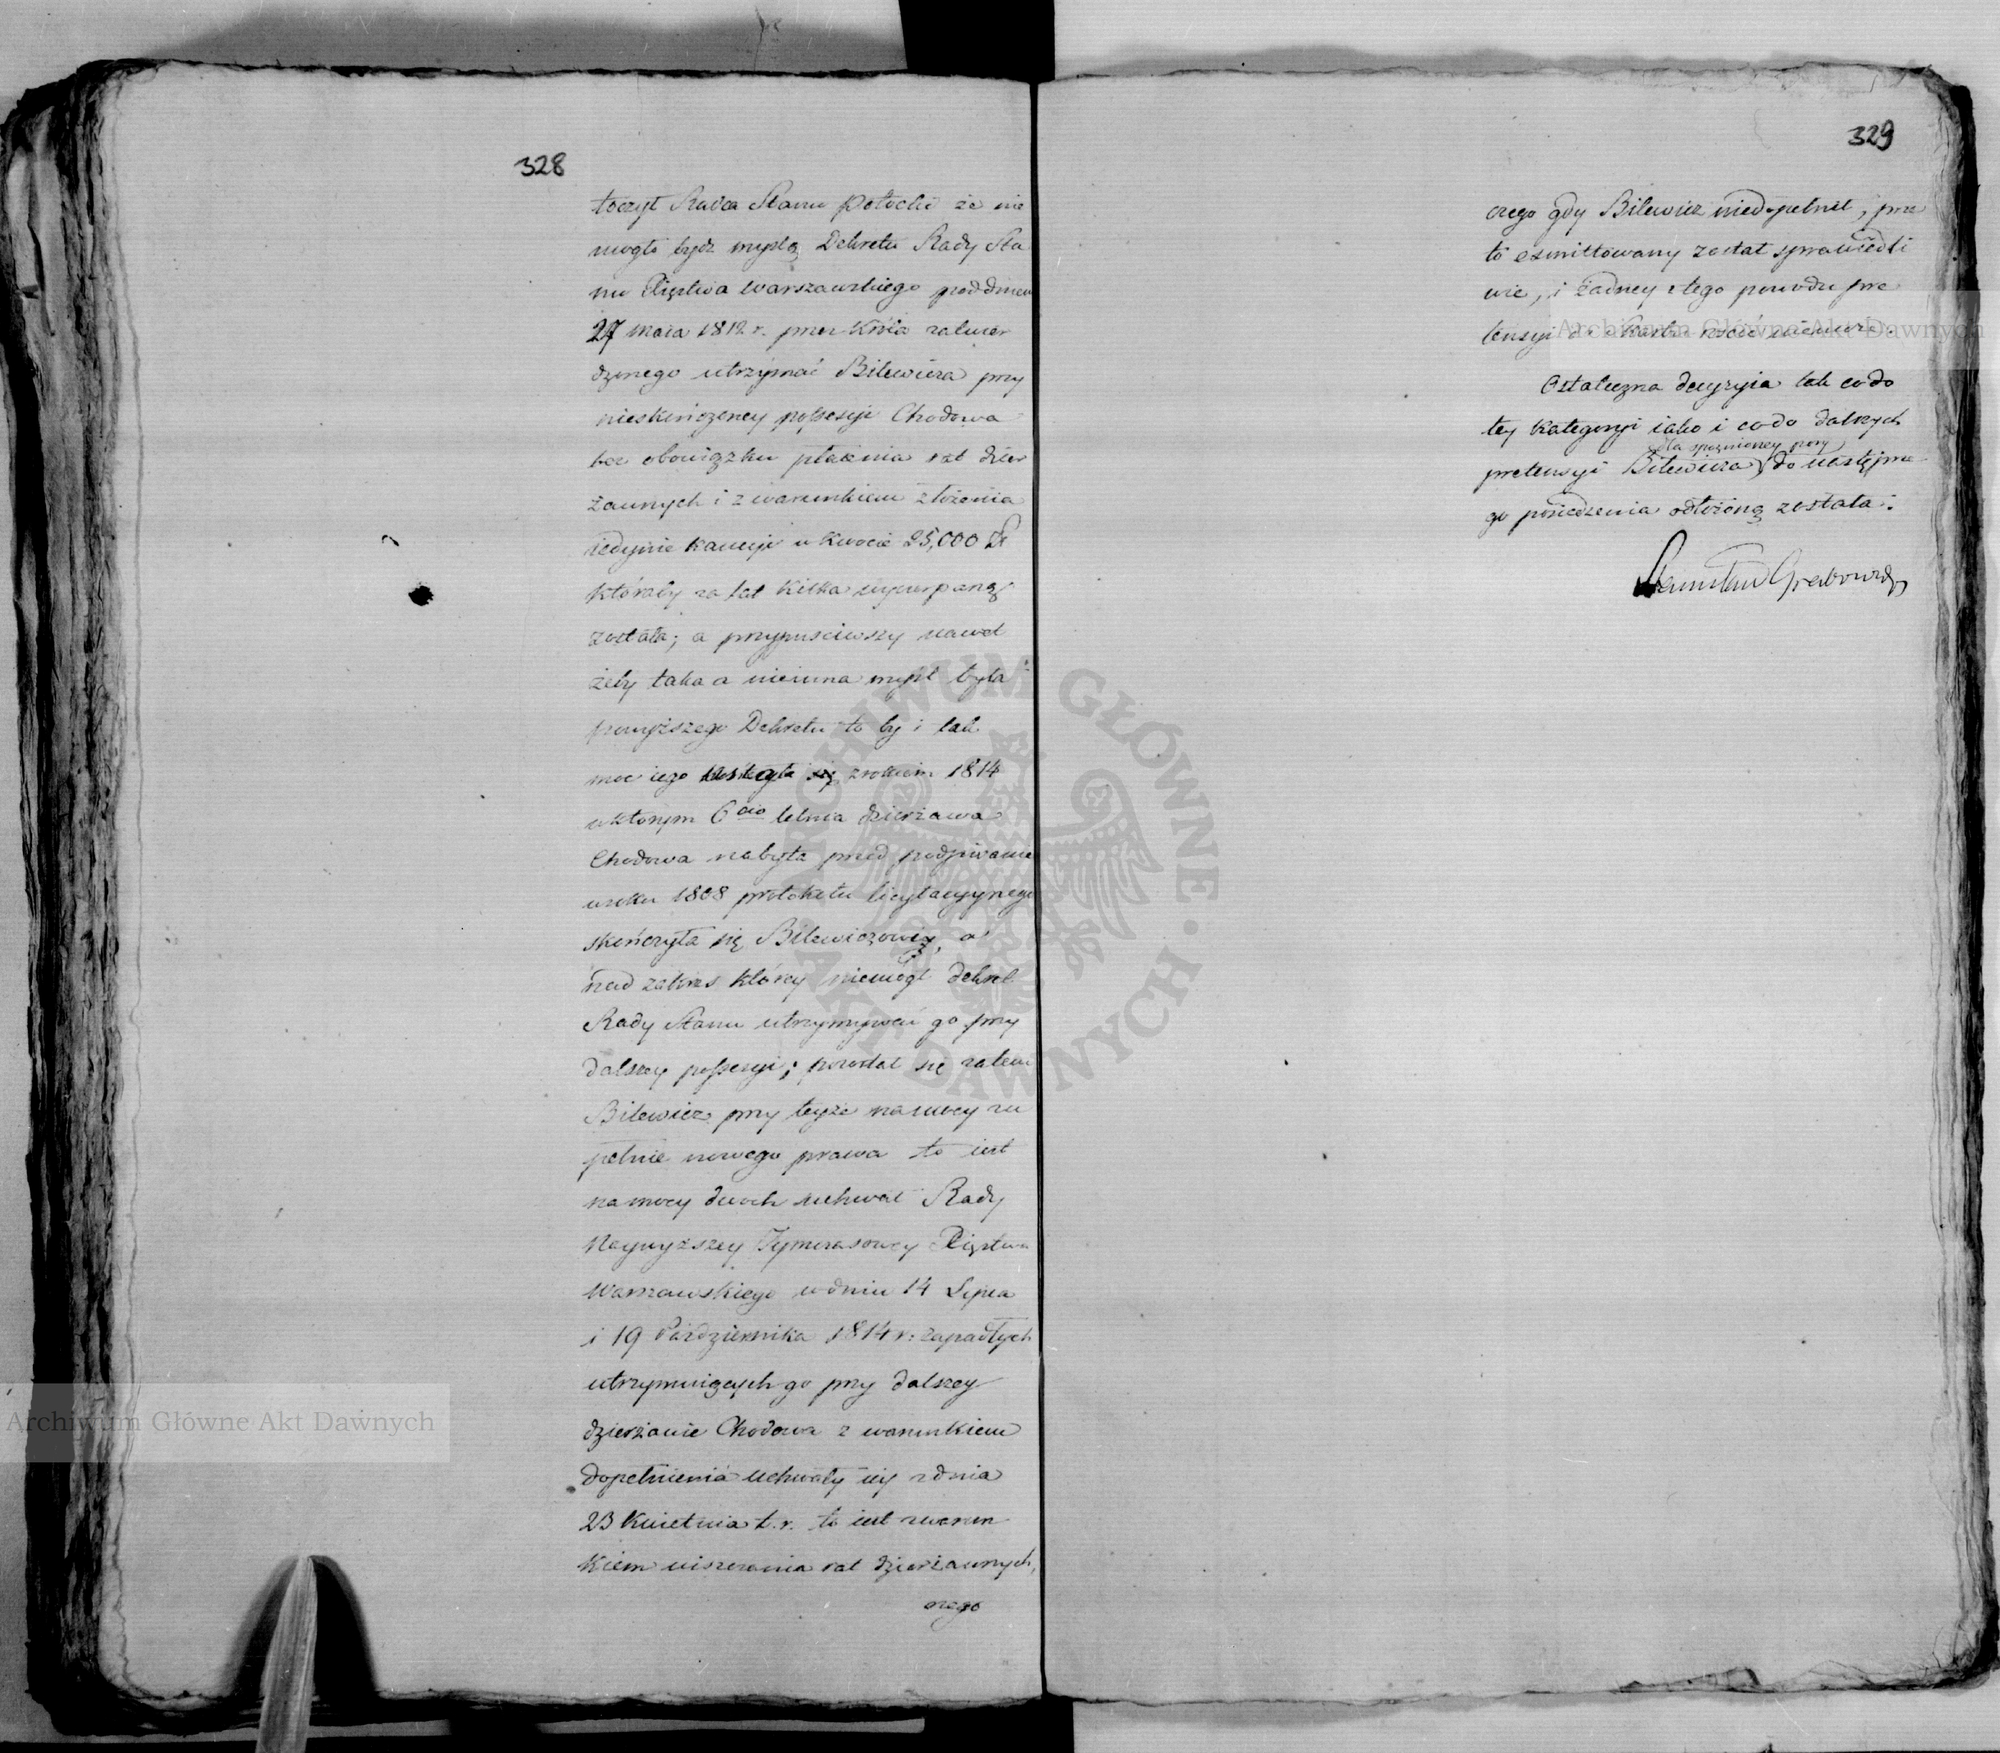 328
toczył Radca Stanu Potocki że nie
mogło bydź myślą Dekretu Rady Sta
nu Xięstwa Warszawskiego pod dniem
27 maia 1812 r. przez Króla zatwier
dzonego utrzymać Bilewicza przy
nieskończoney possessyi Chodowa
bez obowiązku płacenia rat dzier
żawnych i z warunkiem złożenia
iedynie kaucyi w kwocie 25,000 Zł
któraby za lat kilka wyczerpaną
została; a przypuściwszy nawet
żeby taka a nieinna myśl była
powyższego Dekretu to by i tak
moc iego rozciągała się z rokiem 1814
w którym 6cio letnia dzierżawa
Chodowa nabyta przed podpisanie
w roku 1808 protokołu licytacyynego
skończyła się Bilewiczowi, a
nad zakres który niemógł dekret
Rady Stanu utrzymywać go przy
dalszey possessyi; pozostał się zatem
Bilewicz przy teyże na mocy zu
pełnie nowego prawa to iest
na mocy dwóch uchwał Rady
Naywyższey Tymczasowey Xięstwa
Warszawskiego w dniu 14 Lipca
i 19 Października 1814 r: zapadłych
utrzymuiących go przy dalszey
dzierżawie Chodowa z warunkiem
dopełnienia uchwały iey z dnia
23 Kwietnia t. r. to iest z warun
kiem uiszczania rat dzierżawnych,
czego
329
czego gdy Bilewicz niedopełnił, prze
to exmittowany został sprawiedli
wie, i żadney z tego powodu pre
tensyi do skarbu rościć niemoże.
Ostateczna decyzyia tak co do
tey kategoryi iako i co do dalszych
dla spoznioney pory
pretensyi Bilewicza do następne
go posiedzenia odłożoną została.
Stanisław Grabowski
Archiwum Główne Akt Dawnych
Archiwum Główne Akt Dawnych
ARCHIWUM GŁÓWNE · AKT DAWNYCH ·